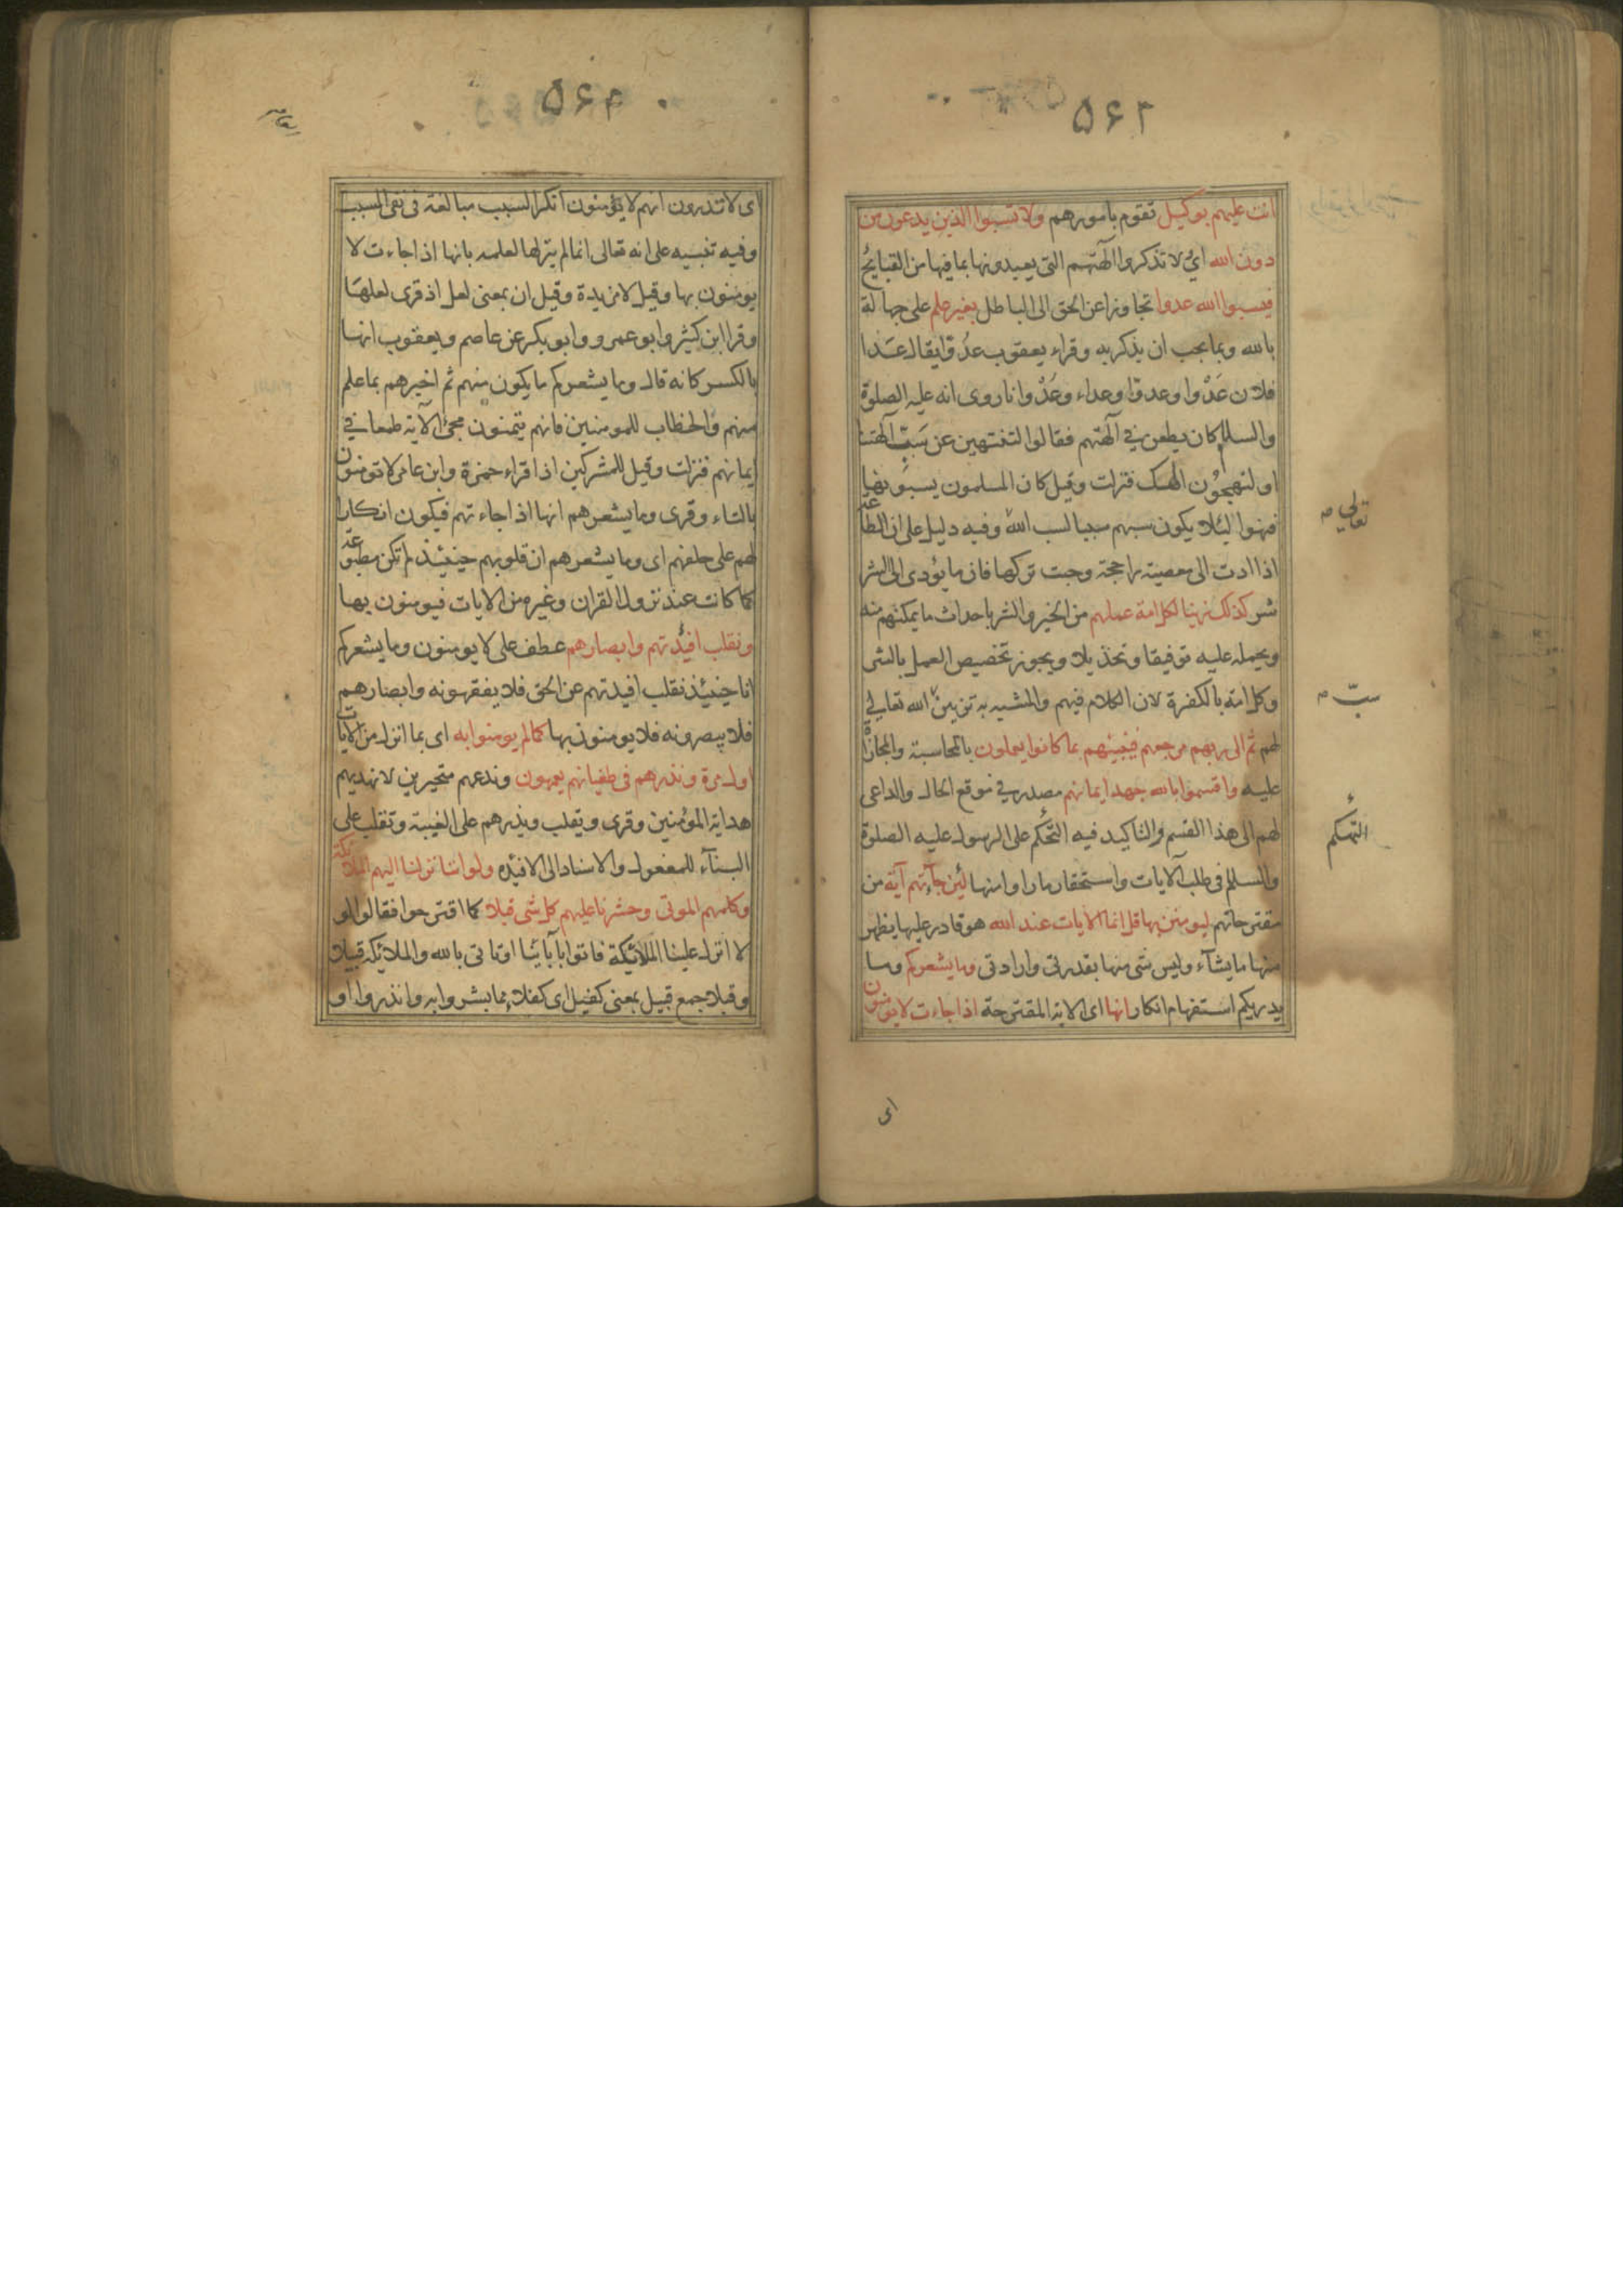 ۵۶۲
انت عليهم بوكيل تقوم بامورهم ولا تسبوا الذين يدعون من
دون الله اي لا تذكروا آلهتهم التى يعبدونها بما فيها من القبايح
فيسبوا الله عدوا تجاوزا عن الحق الى الباطل بغير علم على جهالة
بالله وبما يجب ان يذكر به وقراء يعقوب عدوّا يقال عدا
فلان عَدْوا وعدوّا وعداء وعُدْوانا روى انه عليه الصلوة
والسلام كان يطعن في آلهتهم فقالوا لتنتهين عن سَبّ آلهتنا
او لنهجون الهك فنزلت وقيل كان المسلمون يسبونها
فنهوا ليئلا يكون سبهم سببا لسب الله وفيه دليل على ان الطاعة
اذا ادت الى معصية راجحة وجبت تركها فان ما يؤدى الى الشر
شر كذلك زينا لكل امة عملهم من الخير والشر باحداث ما يمكنهم منه
ويحمله عليه توفيقا وتخذيلا ويجوز تخصيص العمل بالشر
وكل امة بالكفرة لان الكلام فيهم والمشبه به تزيين الله تعالى
لهم ثم الى ربهم مرجعهم فينبئهم بما كانوا يعملون بالمحاسبة والمجازاة
عليه واقسموا بالله جهد ايمانهم مصدر في موقع الحال والداعى
لهم الى هذا القسم والتاكيد فيه التحكم على الرسول عليه الصلوة
والسلام فى طلب الآيات واستحقار ما راوا منها لئن جآءتهم آية من
مقترحاتهم ليومنن بها قل انما الايات عند الله هو قادر عليها يظهر
منها ما يشآء وليس شى منها بقدرتى وارادتى وما يشعركم وما
يدريكم استفهام انكار انها اى الاية المقترحة اذا جاءت لا يومنون
تعالى
سبّ
التحكم
اى
۵۶۳
اى لا تدرون انهم لا يؤمنون انكر السبب مبالغة فى نفى المسبب
وفيه تنبيه على انه تعالى انما لم ينزلها لعلمه بانها اذا جاءت لا
يومنون بها وقيل لا مزيدة وقيل ان بمعنى لعل اذ قرى لعلها
وقرا ابن كثير وابو عمرو وابو بكر عن عاصم ويعقوب انها
بالكسر كانه قال وما يشعركم ما يكون منهم ثم اخبرهم بما علم
منهم والخطاب للمومنين فانهم يتمنون مجئ الآية طمعا في
ايمانهم فنزلت وقيل للمشركين اذا قراء حمزة وابن عامر لا تومنون
بالتاء وقرى وما يشعرهم انها اذا جاءتهم فيكون انكارا
لهم على حلفهم اى وما يشعرهم ان قلوبهم حينئذ لم تكن مطبوعة
كما كانت عند نزول القران وغيره من الايات فيومنون بها
ونقلب افئدتهم وابصارهم عطف على لا يومنون وما يشعركم
انا حينئذ نقلب افيدتهم عن الحق فلا يفقهونه وابصارهم
فلا يبصرونه فلا يومنون بها كما لم يومنوا به اى بما انزل من الايات
اول مرة ونذرهم فى طغيانهم يعمهون وندعهم متحيرين لا نهديهم
هداية المؤمنين وقرى ويقلب ويذرهم على الغيبة وتقلب على
البنآء للمفعول والاسناد الى الافيده ولو اننا نزلنا اليهم الملائكة
وكلمهم الموتى وحشرنا عليهم كل شى قبلا كما اقترحوا فقالوا لو
لا انزل علينا الملائكة فاتوا بآبائنا او تاتى بالله والملائكه قبيلا
وقبلا جمع قبيل بمعنى كفيل اى كفلاء بما بشروا به وانذروا او